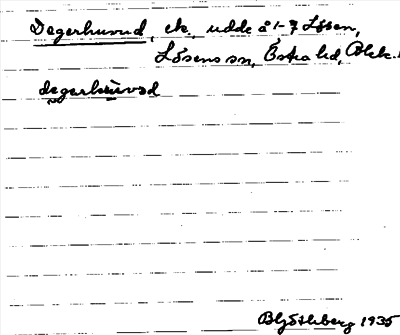 Degerhuvud, ek., udde å 1-7 Lösen,
Lösens sn, Östra hd, Blek.
degerhuvud
B Götlberg 1935